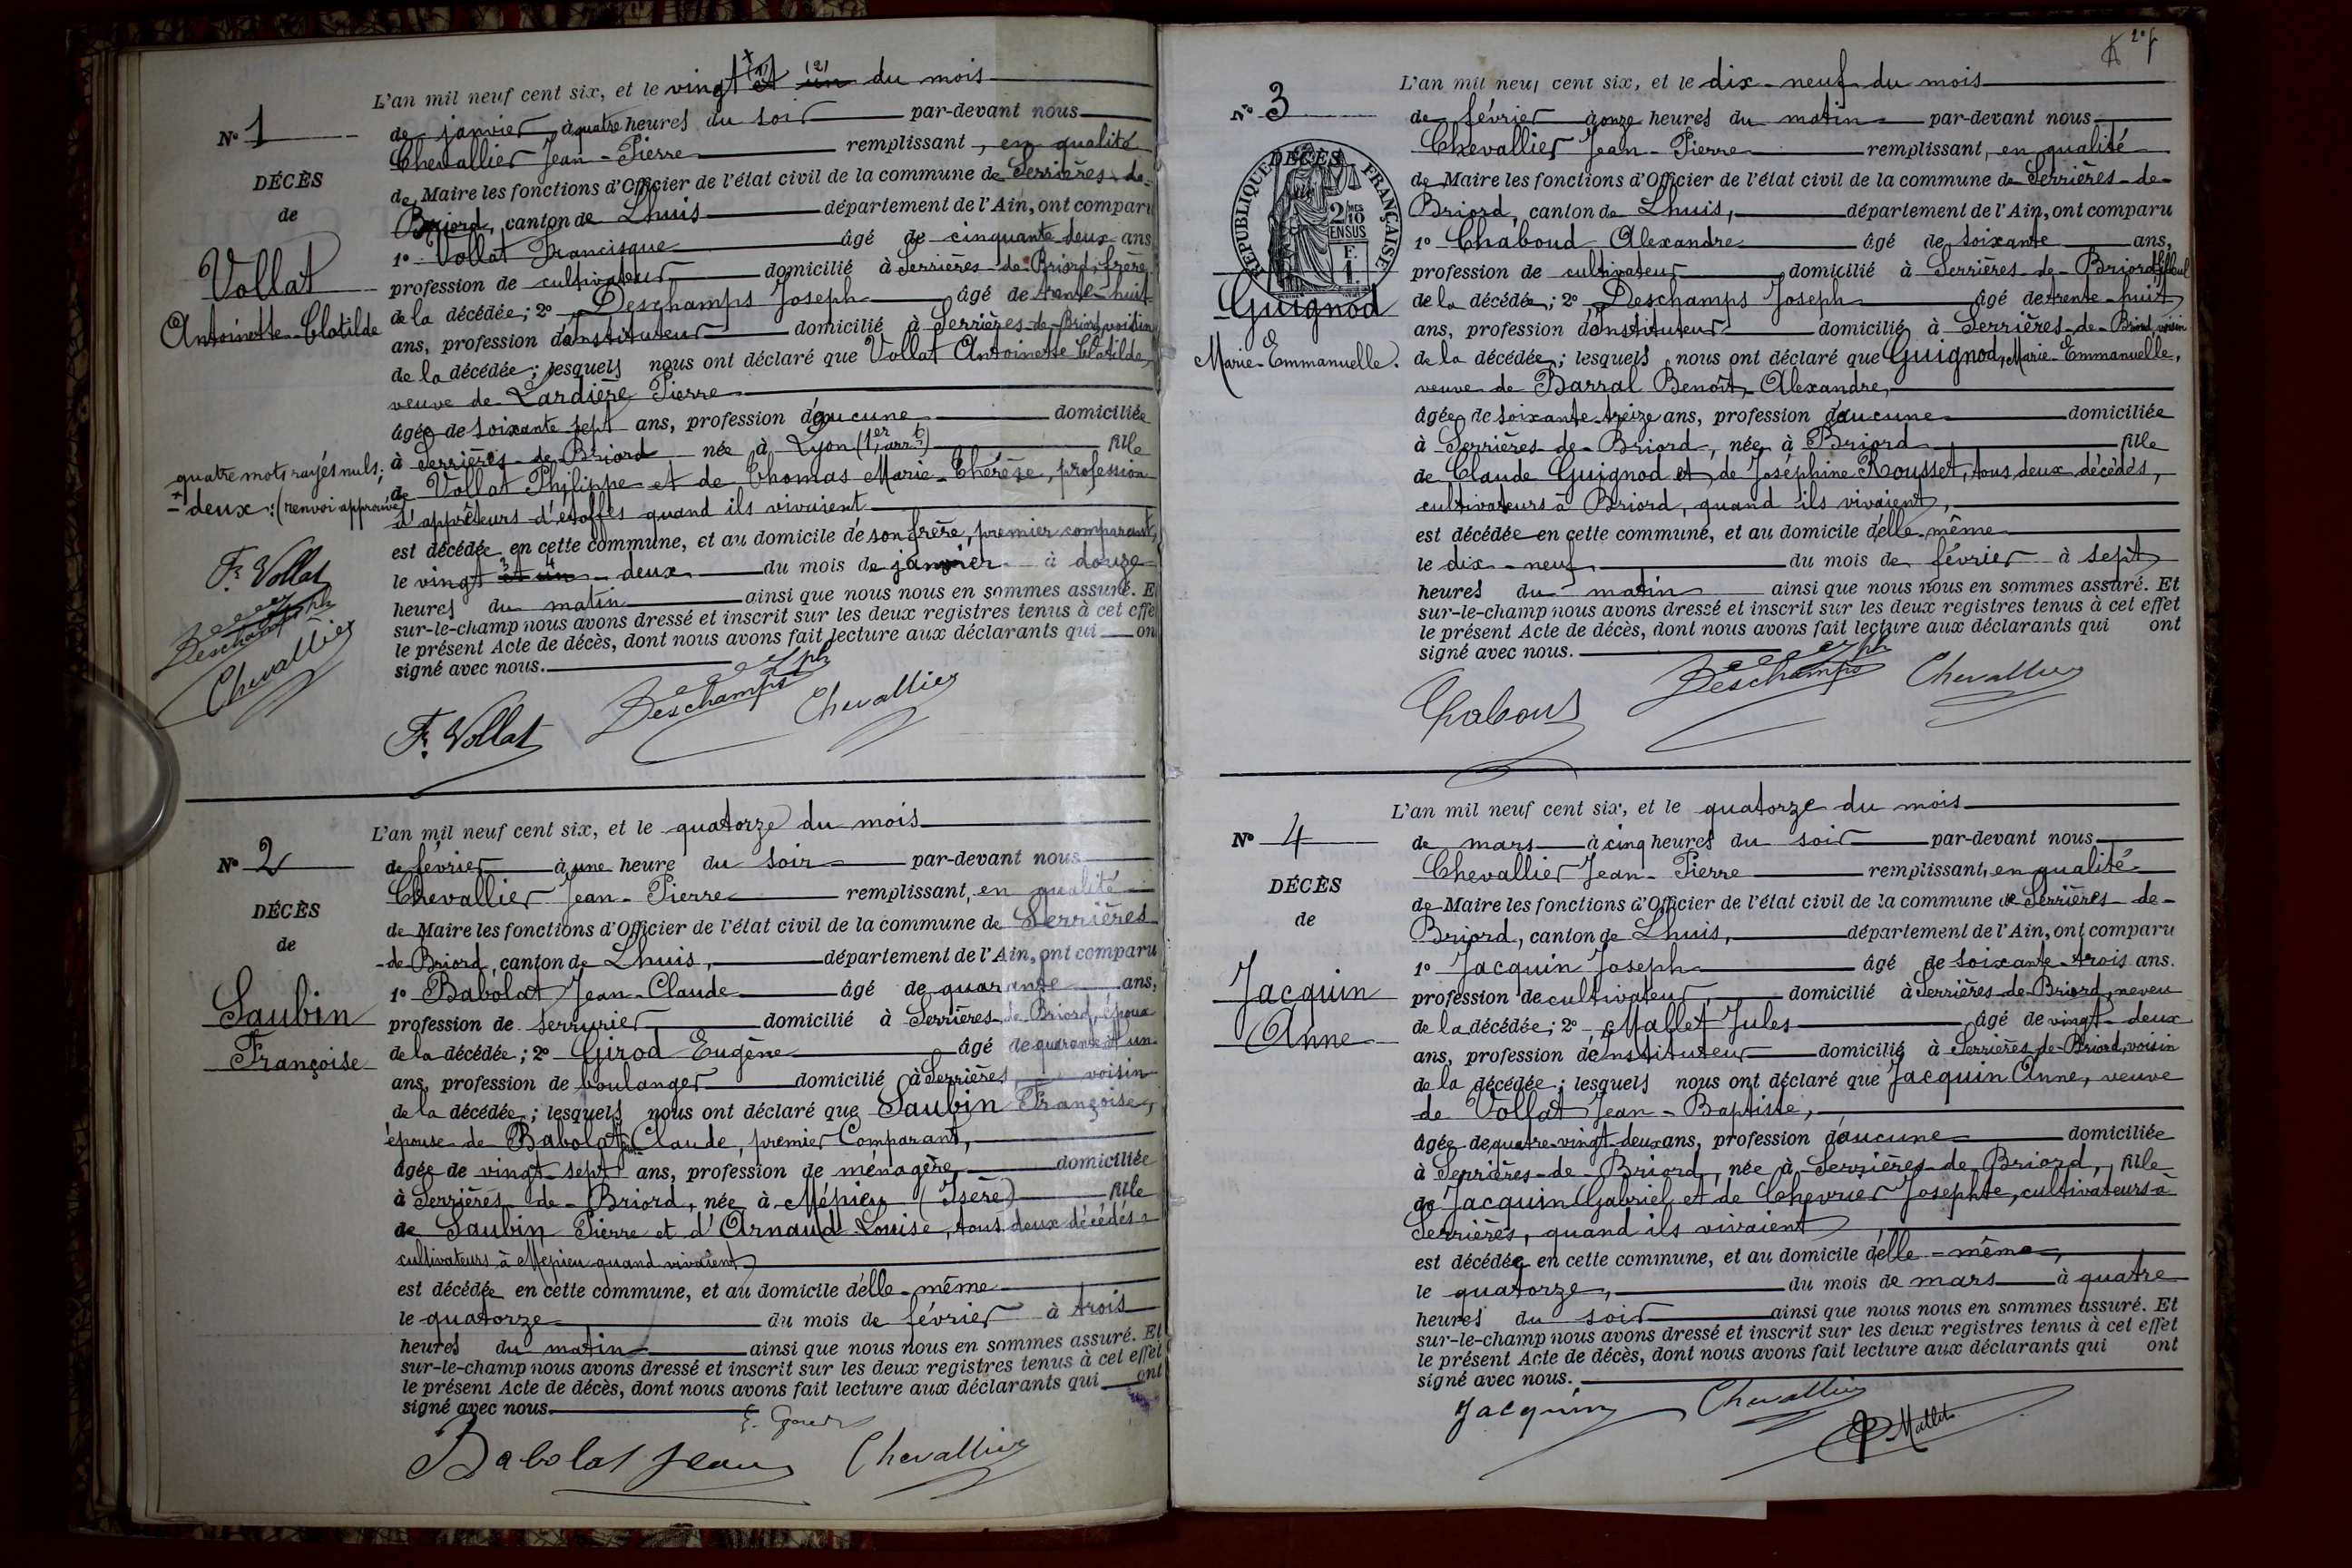 N° 1
DÉCÈS
de
Vollat
Antoinette Clotilde
quatre mots rayés nuls;
+ deux: (renvoi approuvé)
Fs. Vollat
Deschamps Jph
Chevallier
L'an mil neuf cent six, et le vingt + (1) et (2) un du mois
de janvier à quatre heures du soir par-devant nous
Chevallier Jean-Pierre remplissant, en qualité
de Maire les fonctions d'Officier de l'état civil de la commune de Serrières-de-
Briord, canton de Lhuis département de l'Ain, ont comparu
1° Vollat Francisque âgé de cinquante-deux ans
profession de cultivateur domicilié à Serrières-de-Briord, frère
de la décédée; 2° Deschamps Joseph âgé de trente-huit
ans, profession d'instituteur domicilié à Serrières-de-Briord, voisin
de la décédée; lesquels nous ont déclaré que Vollat Antoinette Clotilde,
veuve de Lardière Pierre
âgée de soixante sept ans, profession d'aucune domiciliée
à Serrières-de-Briord née à Lyon (1er arrt) fille
de Vollat Philippe et de Thomas Marie-Thérèse, profession
d'apprêteurs d'étoffes quand ils vivaient
est décédée en cette commune, et au domicile de son frère, premier comparant,
le vingt 3 et 4 un - deux du mois de janvier à douze
heures du matin ainsi que nous nous en sommes assuré. E
sur-le-champ nous avons dressé et inscrit sur les deux registres tenus à cet effe
le présent Acte de décès, dont nous avons fait lecture aux déclarants qui on
signé avec nous.
Fs. Vollat Deschamps Jph Chevallier
N° 2
DÉCÈS
de
Saubin
Françoise
L'an mil neuf cent six, et le quatorze du mois
de février à une heure du soir par-devant nous
Chevallier Jean-Pierre remplissant, en qualité
de Maire les fonctions d'Officier de l'état civil de la commune de Serrières
-de Briord, canton de Lhuis, département de l'Ain, ont comparu
1° Babolat Jean-Claude âgé de quarante ans,
profession de serrurier domicilié à Serrières-de-Briord, époux
de la décédée; 2° Girod Eugène âgé de quarante et un
ans, profession de boulanger domicilié à Serrières, voisin
de la décédée; lesquels nous ont déclaré que Saubin Françoise,
épouse de Babolat Claude, premier Comparant,
âgée de vingt-sept ans, profession de ménagère domiciliée
à Serrières-de-Briord, née à Mépieu (Isère) fille
de Saubin Pierre et d'Arnaud Louise, tous deux décédés
cultivateurs à Mépieu quand vivaient
est décédée en cette commune, et au domicile d'elle-même
le quatorze du mois de février à trois
heures du matin ainsi que nous nous en sommes assuré. Et
sur-le-champ nous avons dressé et inscrit sur les deux registres tenus à cet effet
le présent Acte de décès, dont nous avons fait lecture aux déclarants qui ont
signé avec nous.
Babolat Jean Chevallier
2e f
N° 3
DÉCÈS
RÉPUBLIQUE FRANÇAISE
2/10 MES EN SUS
F. 1.
Guignod
Marie-Emmanuelle.
L'an mil neuf cent six, et le dix-neuf du mois
de février à onze heures du matin par-devant nous
Chevallier Jean-Pierre remplissant, en qualité
de Maire les fonctions d'Officier de l'état civil de la commune de Serrières-de-
Briord, canton de Lhuis, département de l'Ain, ont comparu
1° Chaboud Alexandre âgé de soixante ans,
profession de cultivateur domicilié à Serrières-de-Briord,
de la décédée; 2° Deschamps Joseph âgé de trente-huit
ans, profession d'instituteur domicilié à Serrières-de-Briord, voisin
de la décédée; lesquels nous ont déclaré que Guignod, Marie-Emmanuelle,
veuve de Barral Benoît Alexandre,
âgée de soixante-treize ans, profession d'aucune domiciliée
à Serrières-de-Briord, née à Briord fille
de Claude Guignod et de Joséphine Rousset, tous deux décédés,
cultivateurs à Briord, quand ils vivaient,
est décédée en cette commune, et au domicile d'elle-même
le dix-neuf du mois de février à sept
heures du matin ainsi que nous nous en sommes assuré. Et
sur-le-champ nous avons dressé et inscrit sur les deux registres tenus à cet effet
le présent Acte de décès, dont nous avons fait lecture aux déclarants qui ont
signé avec nous.
Chaboud Deschamps Jph Chevallier
N° 4
DÉCÈS
de
Jacquin
Anne
L'an mil neuf cent six, et le quatorze du mois
de mars à cinq heures du soir par-devant nous
Chevallier Jean-Pierre remplissant, en qualité
de Maire les fonctions d'Officier de l'état civil de la commune de Serrières-de-
Briord, canton de Lhuis, département de l'Ain, ont comparu
1° Jacquin Joseph âgé de soixante-trois ans.
profession de cultivateur, domicilié à Serrières-de-Briord, neveu
de la décédée; 2° Mallet Jules âgé de vingt-deux
ans, profession d'instituteur domicilié à Serrières-de-Briord, voisin
de la décédée; lesquels nous ont déclaré que Jacquin Anne, veuve
de Vollat Jean-Baptiste,
âgée de quatre-vingt-deux ans, profession d'aucune domiciliée
à Serrières-de-Briord, née à Serrières-de-Briord, fille
de Jacquin Gabriel et de Chevrier Josephte, cultivateurs à
Serrières, quand ils vivaient,
est décédée en cette commune, et au domicile d'elle-même,
le quatorze, du mois de mars à quatre
heures du soir ainsi que nous nous en sommes assuré. Et
sur-le-champ nous avons dressé et inscrit sur les deux registres tenus à cet effet
le présent Acte de décès, dont nous avons fait lecture aux déclarants qui ont
signé avec nous.
Jacquin Chevallier Mallet